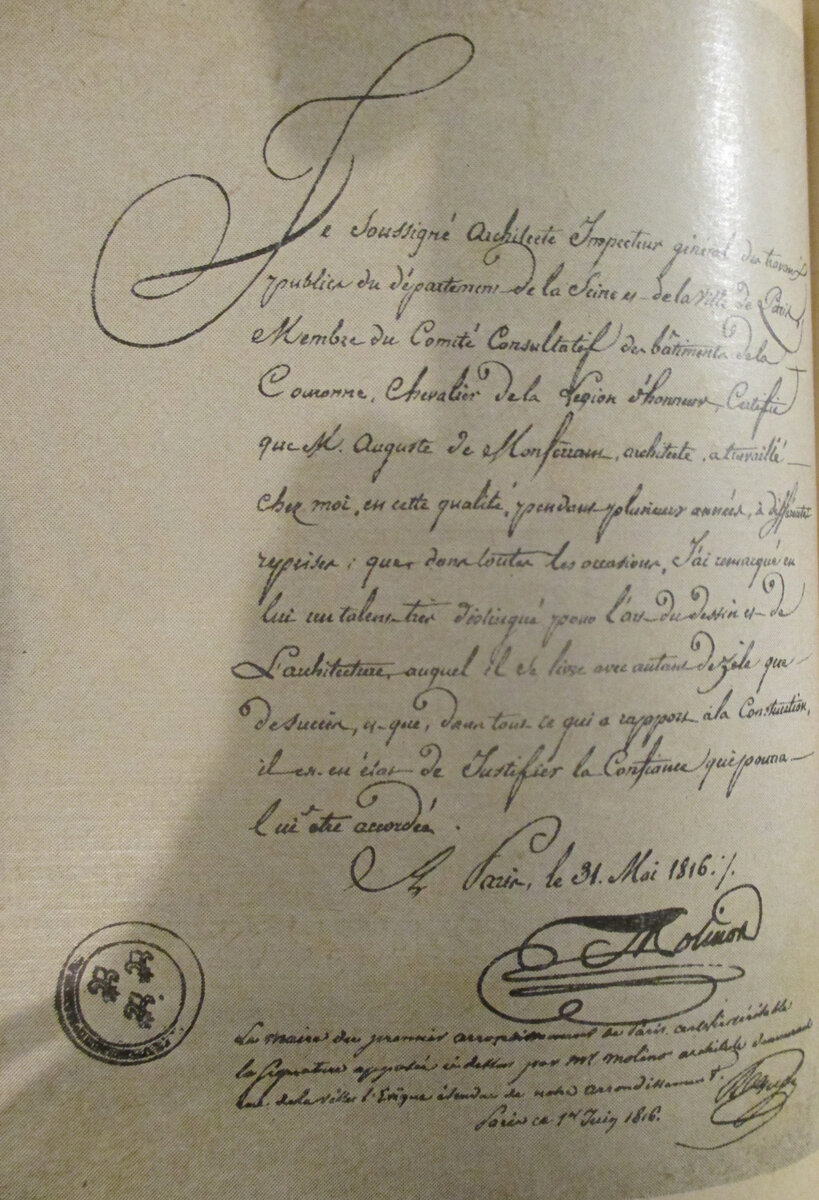 Je Soussigné Architecte Inspecteur général des travaux
publics du département de la Seine et de la ville de Paris,
Membre du Comité Consultatif des bâtiments de la
Couronne, Chevalier de la Légion d'honneur, Certifie
que M. Auguste de Montferrand, architecte, a travaillé
chez moi, en cette qualité, pendant plusieurs années, à différentes
reprises; que, dans toutes les occasions, J'ai remarqué en
lui un talent très distingué pour l'art du dessin et de
L'architecture, auquel il se livre avec autant de zèle que
de succès, et que, dans tout ce qui a rapport à la Construction,
il est en état de Justifier la Confiance qui pourra
lui être accordée.
A Paris, le 31. Mai 1816 ./.
Molinos
Le maire du premier arrondissement de Paris certifie véritable
la signature apposée ci dessus par Mr. Molinos architecte demeurant
rue de la Ville l'Evêque étendue de notre arrondissement.
Paris ce 1er Juin 1816.